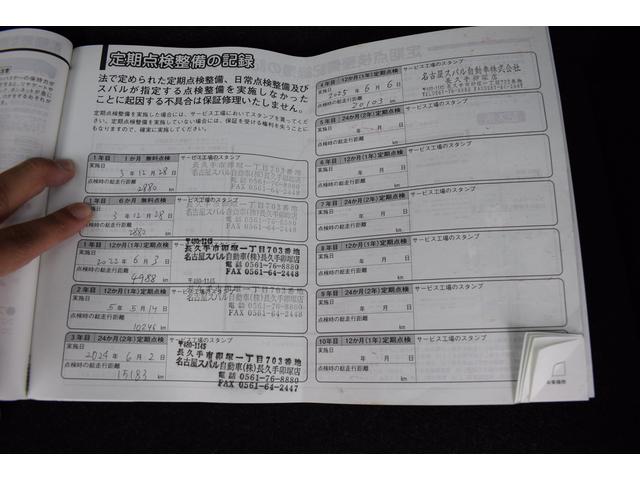 定期点検整備の記録
法で定められた定期点検整備、日常点検整備及び
スバルが指定する点検整備を実施しなかった
ことに起因する不具合は保証修理いたしません。
定期点検整備を実施した場合には、サービス工場においてスタンプを貰ってくだ
さい。定期点検整備を実施していない場合には、保証を受ける権利を失うことに
もなりますので、確実に実施してください。
1年目 1か月 無料点検 サービス工場のスタンプ
実施日
3年12月28日
点検時の総走行距離
2880 km
長久手市卯塚一丁目703番地
名古屋スバル自動車(株)長久手卯塚店
電話 0561-76-8880
FAX 0561-64-2448
1年目 6か月 無料点検 サービス工場のスタンプ
実施日
3年12月28日
点検時の総走行距離
2880 km
長久手市卯塚一丁目703番地
名古屋スバル自動車(株)長久手卯塚店
電話 0561-76-8880
FAX 0561-64-2448
1年目 12か月(1年)定期点検 サービス工場のスタンプ
実施日
2022年6月3日
点検時の総走行距離
4988 km
〒480-1145
長久手市卯塚一丁目703番地
名古屋スバル自動車(株)長久手卯塚店
電話 0561-76-8880
FAX 0561-64-2448
2年目 12か月(1年)定期点検 サービス工場のスタンプ
実施日
5年5月14日
点検時の総走行距離
10246 km
〒480-1145
長久手市卯塚一丁目703番地
名古屋スバル自動車(株)長久手卯塚店
電話 0561-76-8880
FAX 0561-64-2448
3年目 24か月(2年)定期点検 サービス工場のスタンプ
実施日
2024年6月2日
点検時の総走行距離
15183 km
〒480-1145
長久手市卯塚一丁目703番地
名古屋スバル自動車(株)長久手卯塚店
電話 0561-76-8880
FAX 0561-64-2447
4年目 12か月(1年)定期点検 サービス工場のスタンプ
実施日
2025年6月6日
点検時の総走行距離
20103 km
名古屋スバル自動車株式会社
長久手卯塚店
5年目 24か月(2年)定期点検 サービス工場のスタンプ
実施日
年 月 日
点検時の総走行距離
km
6年目 12か月(1年)定期点検 サービス工場のスタンプ
実施日
年 月 日
点検時の総走行距離
km
7年目 24か月(2年)定期点検 サービス工場のスタンプ
実施日
年 月 日
点検時の総走行距離
km
8年目 12か月(1年)定期点検 サービス工場のスタンプ
実施日
年 月 日
点検時の総走行距離
km
9年目 24か月(2年)定期点検 サービス工場のスタンプ
実施日
年 月 日
点検時の総走行距離
km
10年目 12か月(1年)定期点検 サービス工場のスタンプ
実施日
年 月 日
点検時の総走行距離
km
お客様用